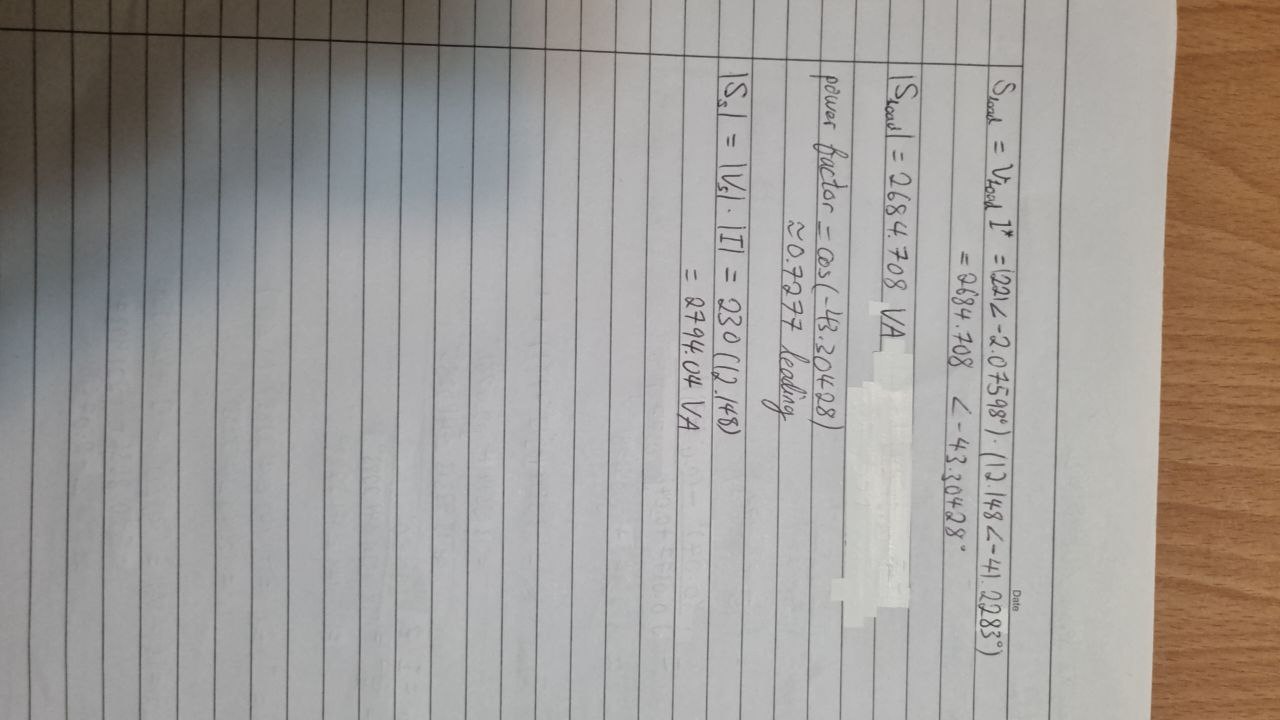 Date
S_load = V_load I* = (221∠-2.07598°)·(12.148∠-41.2283°)
= 2684.708 ∠-43.30428°
|S_load| = 2684.708 VA
power factor = cos(-43.30428)
≈ 0.7277 leading
|S_s| = |V_s|·|I| = 230(12.148)
= 2794.04 VA